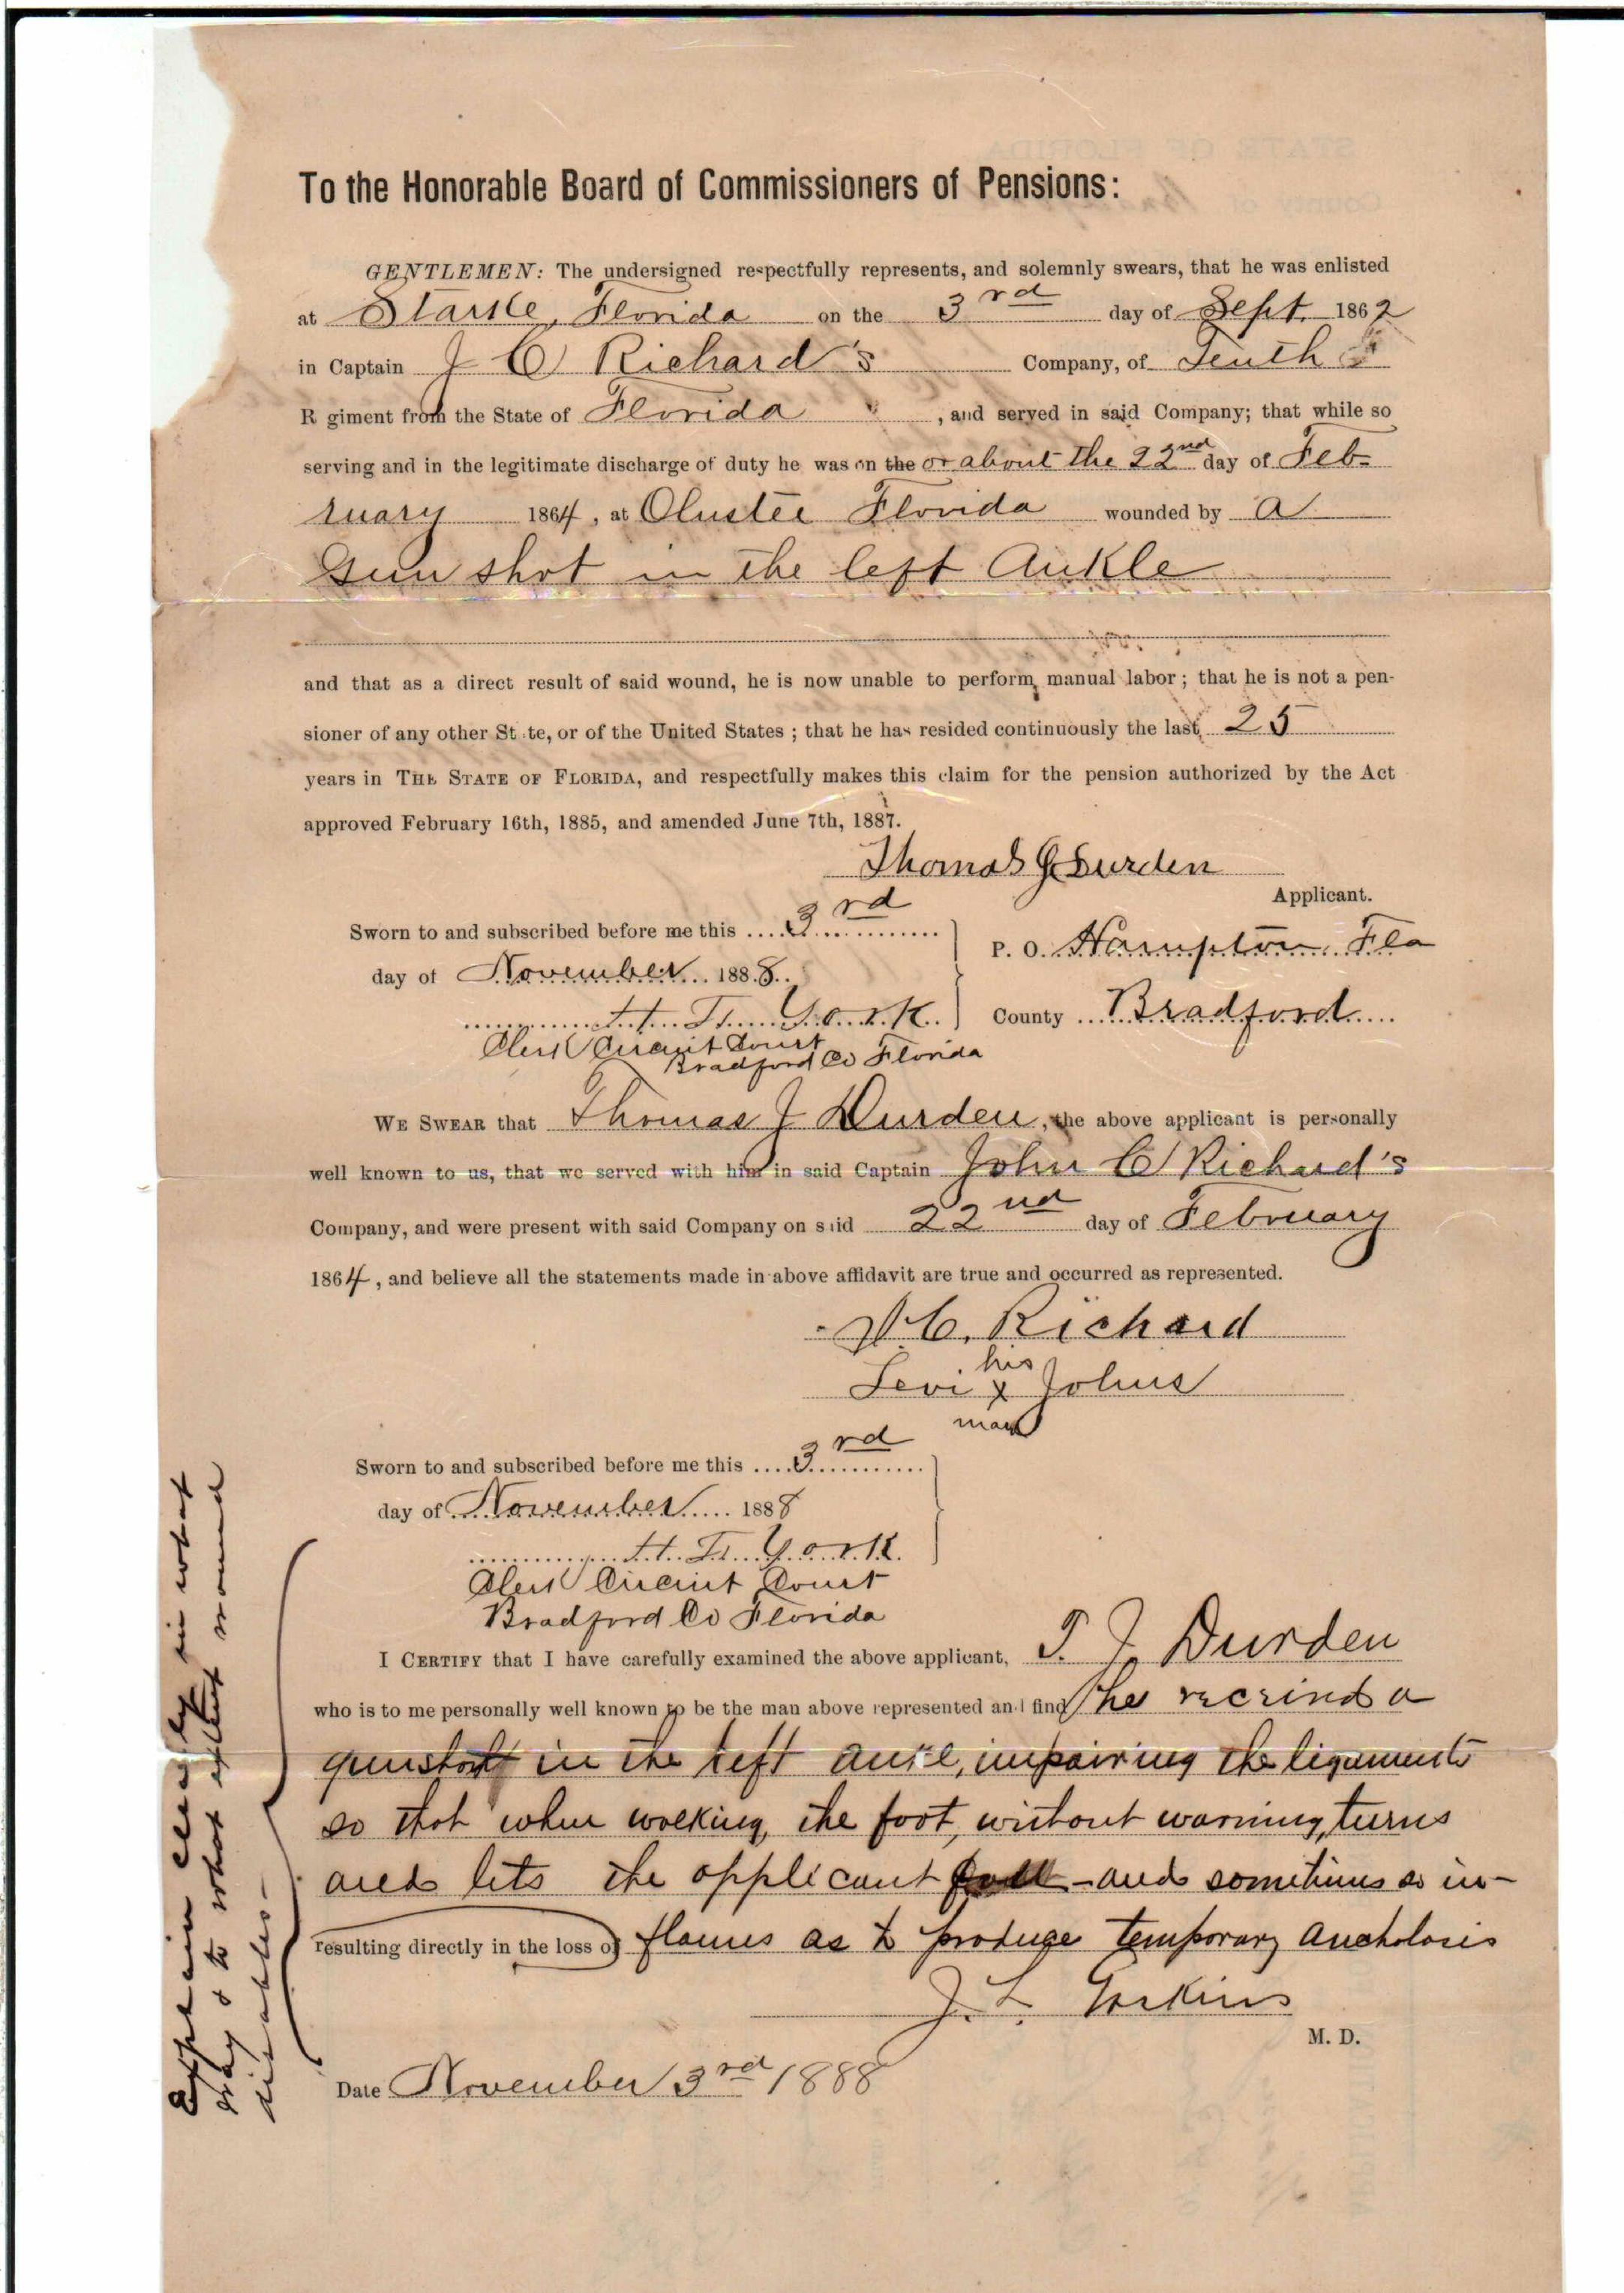 To the Honorable Board of Commissioners of Pensions:
GENTLEMEN: The undersigned respectfully represents, and solemnly swears, that he was enlisted
at Starke, Florida on the 3rd day of Sept. 1862
in Captain J C Richard's Company, of Tenth
R giment from the State of Florida , and served in said Company; that while so
serving and in the legitimate discharge of duty he was on the or about the 22nd day of Feb-
ruary 1864, at Olustee Florida wounded by a
Gun shot in the left Ankle
and that as a direct result of said wound, he is now unable to perform manual labor; that he is not a pen-
sioner of any other St te, or of the United States; that he has resided continuously the last 25
years in THE STATE OF FLORIDA, and respectfully makes this claim for the pension authorized by the Act
approved February 16th, 1885, and amended June 7th, 1887.
Thomas J Durden
Applicant.
Sworn to and subscribed before me this 3rd
P. O. Hampton, Fla
day of November 1888.
H. F. York
County Bradford
Clerk Circuit Court
Bradford Co Florida
WE SWEAR that Thomas J Durden, the above applicant is personally
well known to us, that we served with him in said Captain John C Richard's
Company, and were present with said Company on said 22nd day of February
1864, and believe all the statements made in above affidavit are true and occurred as represented.
J. C. Richard
his
Levi x Johns
mark
Sworn to and subscribed before me this 3rd
day of November 1888
H. F. York
Clerk Circuit Court
Bradford Co Florida
I CERTIFY that I have carefully examined the above applicant, T. J. Durden
who is to me personally well known to be the man above represented and find he received a
gunshot in the left ankle, impairing the ligaments
so that when walking, the foot, without warning, turns
and lets the applicant fall - and sometimes so in-
resulting directly in the loss of flames as to produce temporary anchylosis
J. L. Gaskins
M. D.
Date November 3rd 1888
Explain clearly in what
way & to what extent wound
disables-